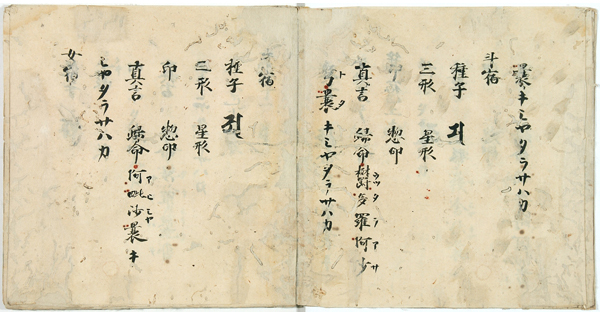 曩キミヤタラサハカ
斗宿
種子
三形 星形
印 惣印
真言 歸命 多羅阿沙
曩キミヤタラサハカ
宿
種子
三形 星形
印 惣印
真言 歸命阿毗沙曩キ
ミヤタラサハカ
女宿